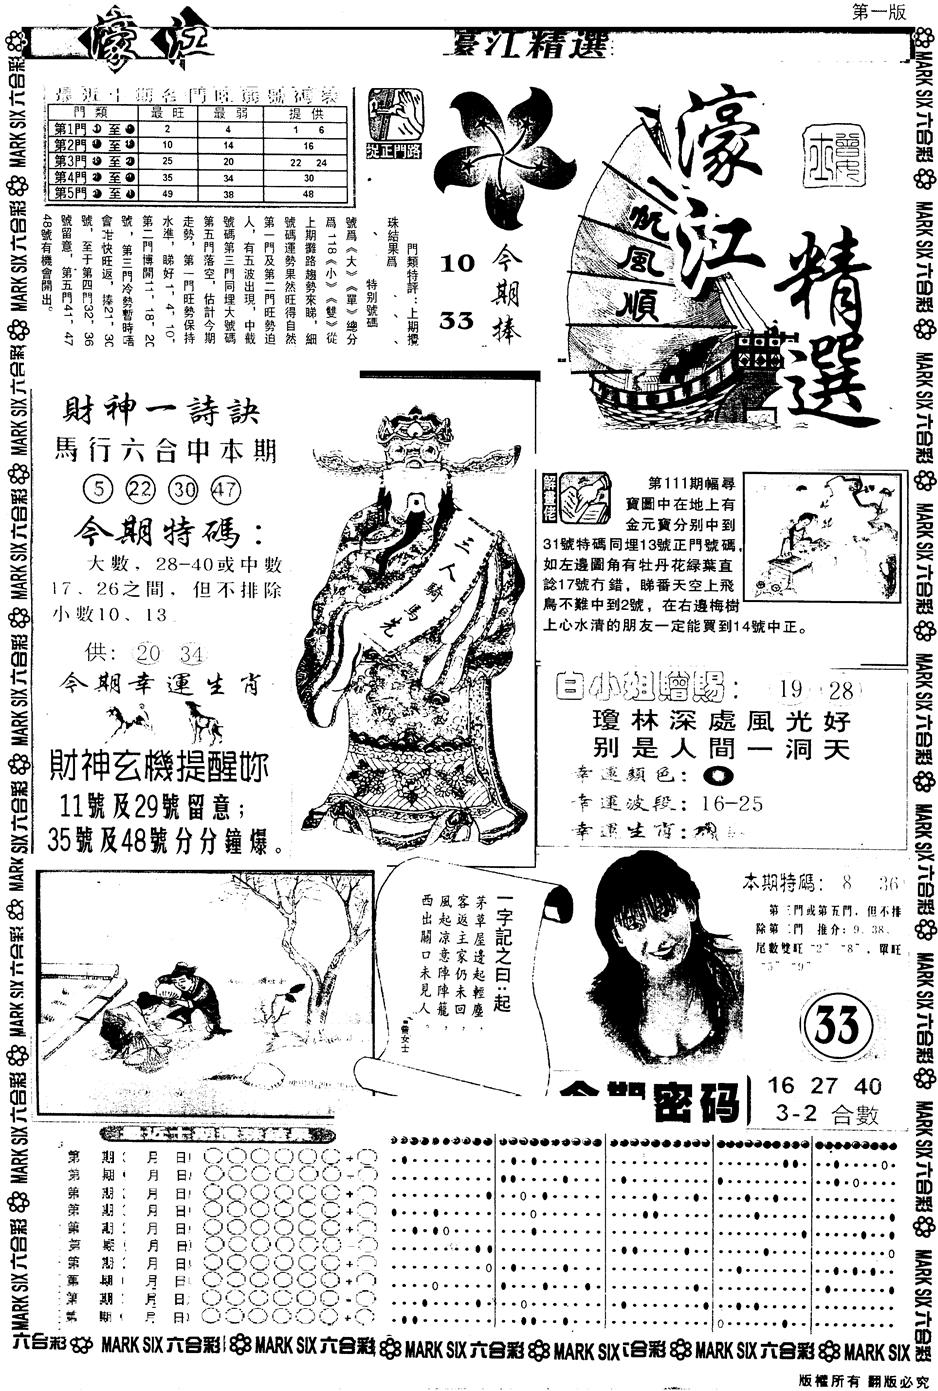 第一版
濠江
濠江精選
濠江精選
一帆風順
門類 最旺 最弱 提供
第1門 至 2 4 1 6
第2門 至 10 14 16
第3門 至 25 20 22 24
第4門 至 35 34 30
第5門 至 49 38 48
從正門路
門類特評：上期攪
珠結果爲 、 、 、
、 特别號碼
號爲《大》《單》總分
爲118《小》《雙》從
上期攤路趨勢來睇，細
號碼運勢果然旺得自然
第一門及第二門旺勢迫
人，有五波出現，中截
號碼第三門同埋大號碼
第五門落空，估計今期
走勢，第一門旺勢保持
水準，睇好1，4，10，
第二門博開11，18，20
號，第三門冷勢暫時唔
會冚快旺返，捧21，30
號，至于第四門32，36
號留意，第五門41，47
48號有機會開出。
今期捧
10
33
財神一詩訣
馬行六合中本期
5 22 30 47
今期特碼：
大數，28-40或中數
17、26之間，但不排除
小數10、13
供：20 34
今期幸運生肖
財神玄機提醒妳
11號及29號留意；
35號及48號分分鐘爆。
三人騎馬先
解畫佬
第111期幅尋
寶圖中在地上有
金元寶分别中到
31號特碼同埋13號正門號碼，
如左邊圖角有牡丹花緑葉直
諗17號冇錯，睇番天空上飛
鳥不難中到2號，在右邊梅樹
上心水清的朋友一定能買到14號中正。
白小姐贈賜：19 28
瓊林深處風光好
别是人間一洞天
幸運顏色：
幸運波段：16-25
幸運生肖：
一字記之曰：起
茅草屋邊起輕塵，
客返主家仍未回，
風起凉意陣陣籠，
西出關口未見人。
●曾女士
本期特碼：8 36
第三門或第五門，但不排
除第二門 推介：9、38、
尾數雙旺"2" "8"，單旺
"5" "9"
33
今期密码
16 27 40
3-2 合數
第 期 月 日 +
第 期 月 日 +
第 期 月 日 +
第 期 月 日 +
第 期 月 日 +
第 期 月 日 +
第 期 月 日 +
第 期 月 日 +
第 期 月 日 +
第 期 月 日 +
MARK SIX 六合彩
版權所有 翻版必究